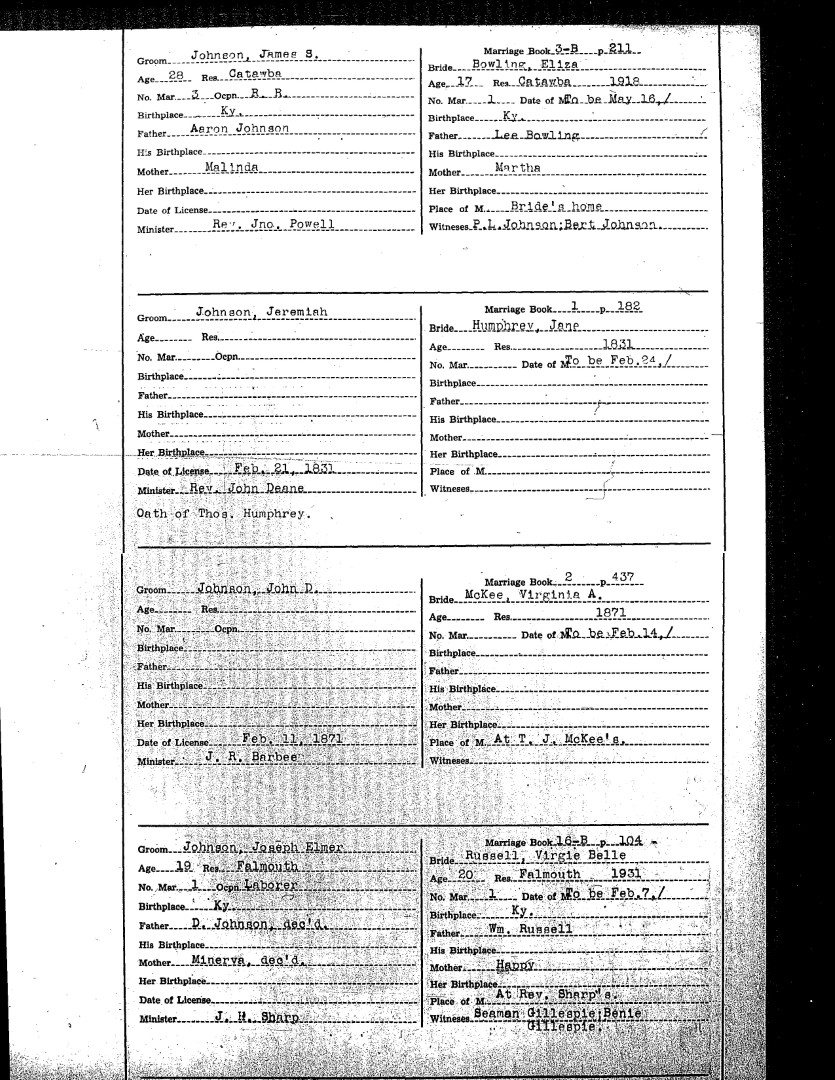 Groom Johnson, James S.
Age 28 Res. Catawba
No. Mar. 3 Ocpn. R. R.
Birthplace Ky.
Father Aaron Johnson
His Birthplace
Mother Malinda
Her Birthplace
Date of License
Minister Rev. Jno. Powell
Marriage Book 3-B p. 211
Bride Bowling, Eliza
Age 17 Res. Catawba 1918
No. Mar. 1 Date of M. To be May 16,/
Birthplace Ky.
Father Lee Bowling
His Birthplace
Mother Martha
Her Birthplace
Place of M. Bride's home
Witneses P.L.Johnson;Bert Johnson.
Groom Johnson, Jeremiah
Age Res.
No. Mar. Ocpn.
Birthplace
Father
His Birthplace
Mother
Her Birthplace
Date of License Feb. 21, 1831
Minister Rev. John Deane
Oath of Thos. Humphrey.
Marriage Book 1 p. 182
Bride Humphrey, Jane
Age Res. 1831
No. Mar. Date of M. To be Feb.24,/
Birthplace
Father
His Birthplace
Mother
Her Birthplace
Place of M.
Witneses
Groom Johnson, John D.
Age Res.
No. Mar. Ocpn.
Birthplace
Father
His Birthplace
Mother
Her Birthplace
Date of License Feb. 11, 1871
Minister J. R. Barbee
Marriage Book 2 p. 437
Bride McKee, Virginia A.
Age Res. 1871
No. Mar. Date of M. To be Feb.14,/
Birthplace
Father
His Birthplace
Mother
Her Birthplace
Place of M. At T. J. McKee's.
Witneses
Groom Johnson, Joseph Elmer
Age 19 Res. Falmouth
No. Mar. 1 Ocpn. Laborer
Birthplace Ky.
Father D. Johnson, dec'd.
His Birthplace
Mother Minerva, dec'd.
Her Birthplace
Date of License
Minister J. H. Sharp
Marriage Book 16-B p. 104
Bride Russell, Virgie Belle
Age 20 Res. Falmouth 1931
No. Mar. 1 Date of M. To be Feb.7,/
Birthplace Ky.
Father Wm. Russell
His Birthplace
Mother Happy
Her Birthplace
Place of M. At Rev. Sharp's.
Witneses Seaman Gillespie;Benie
Gillespie.